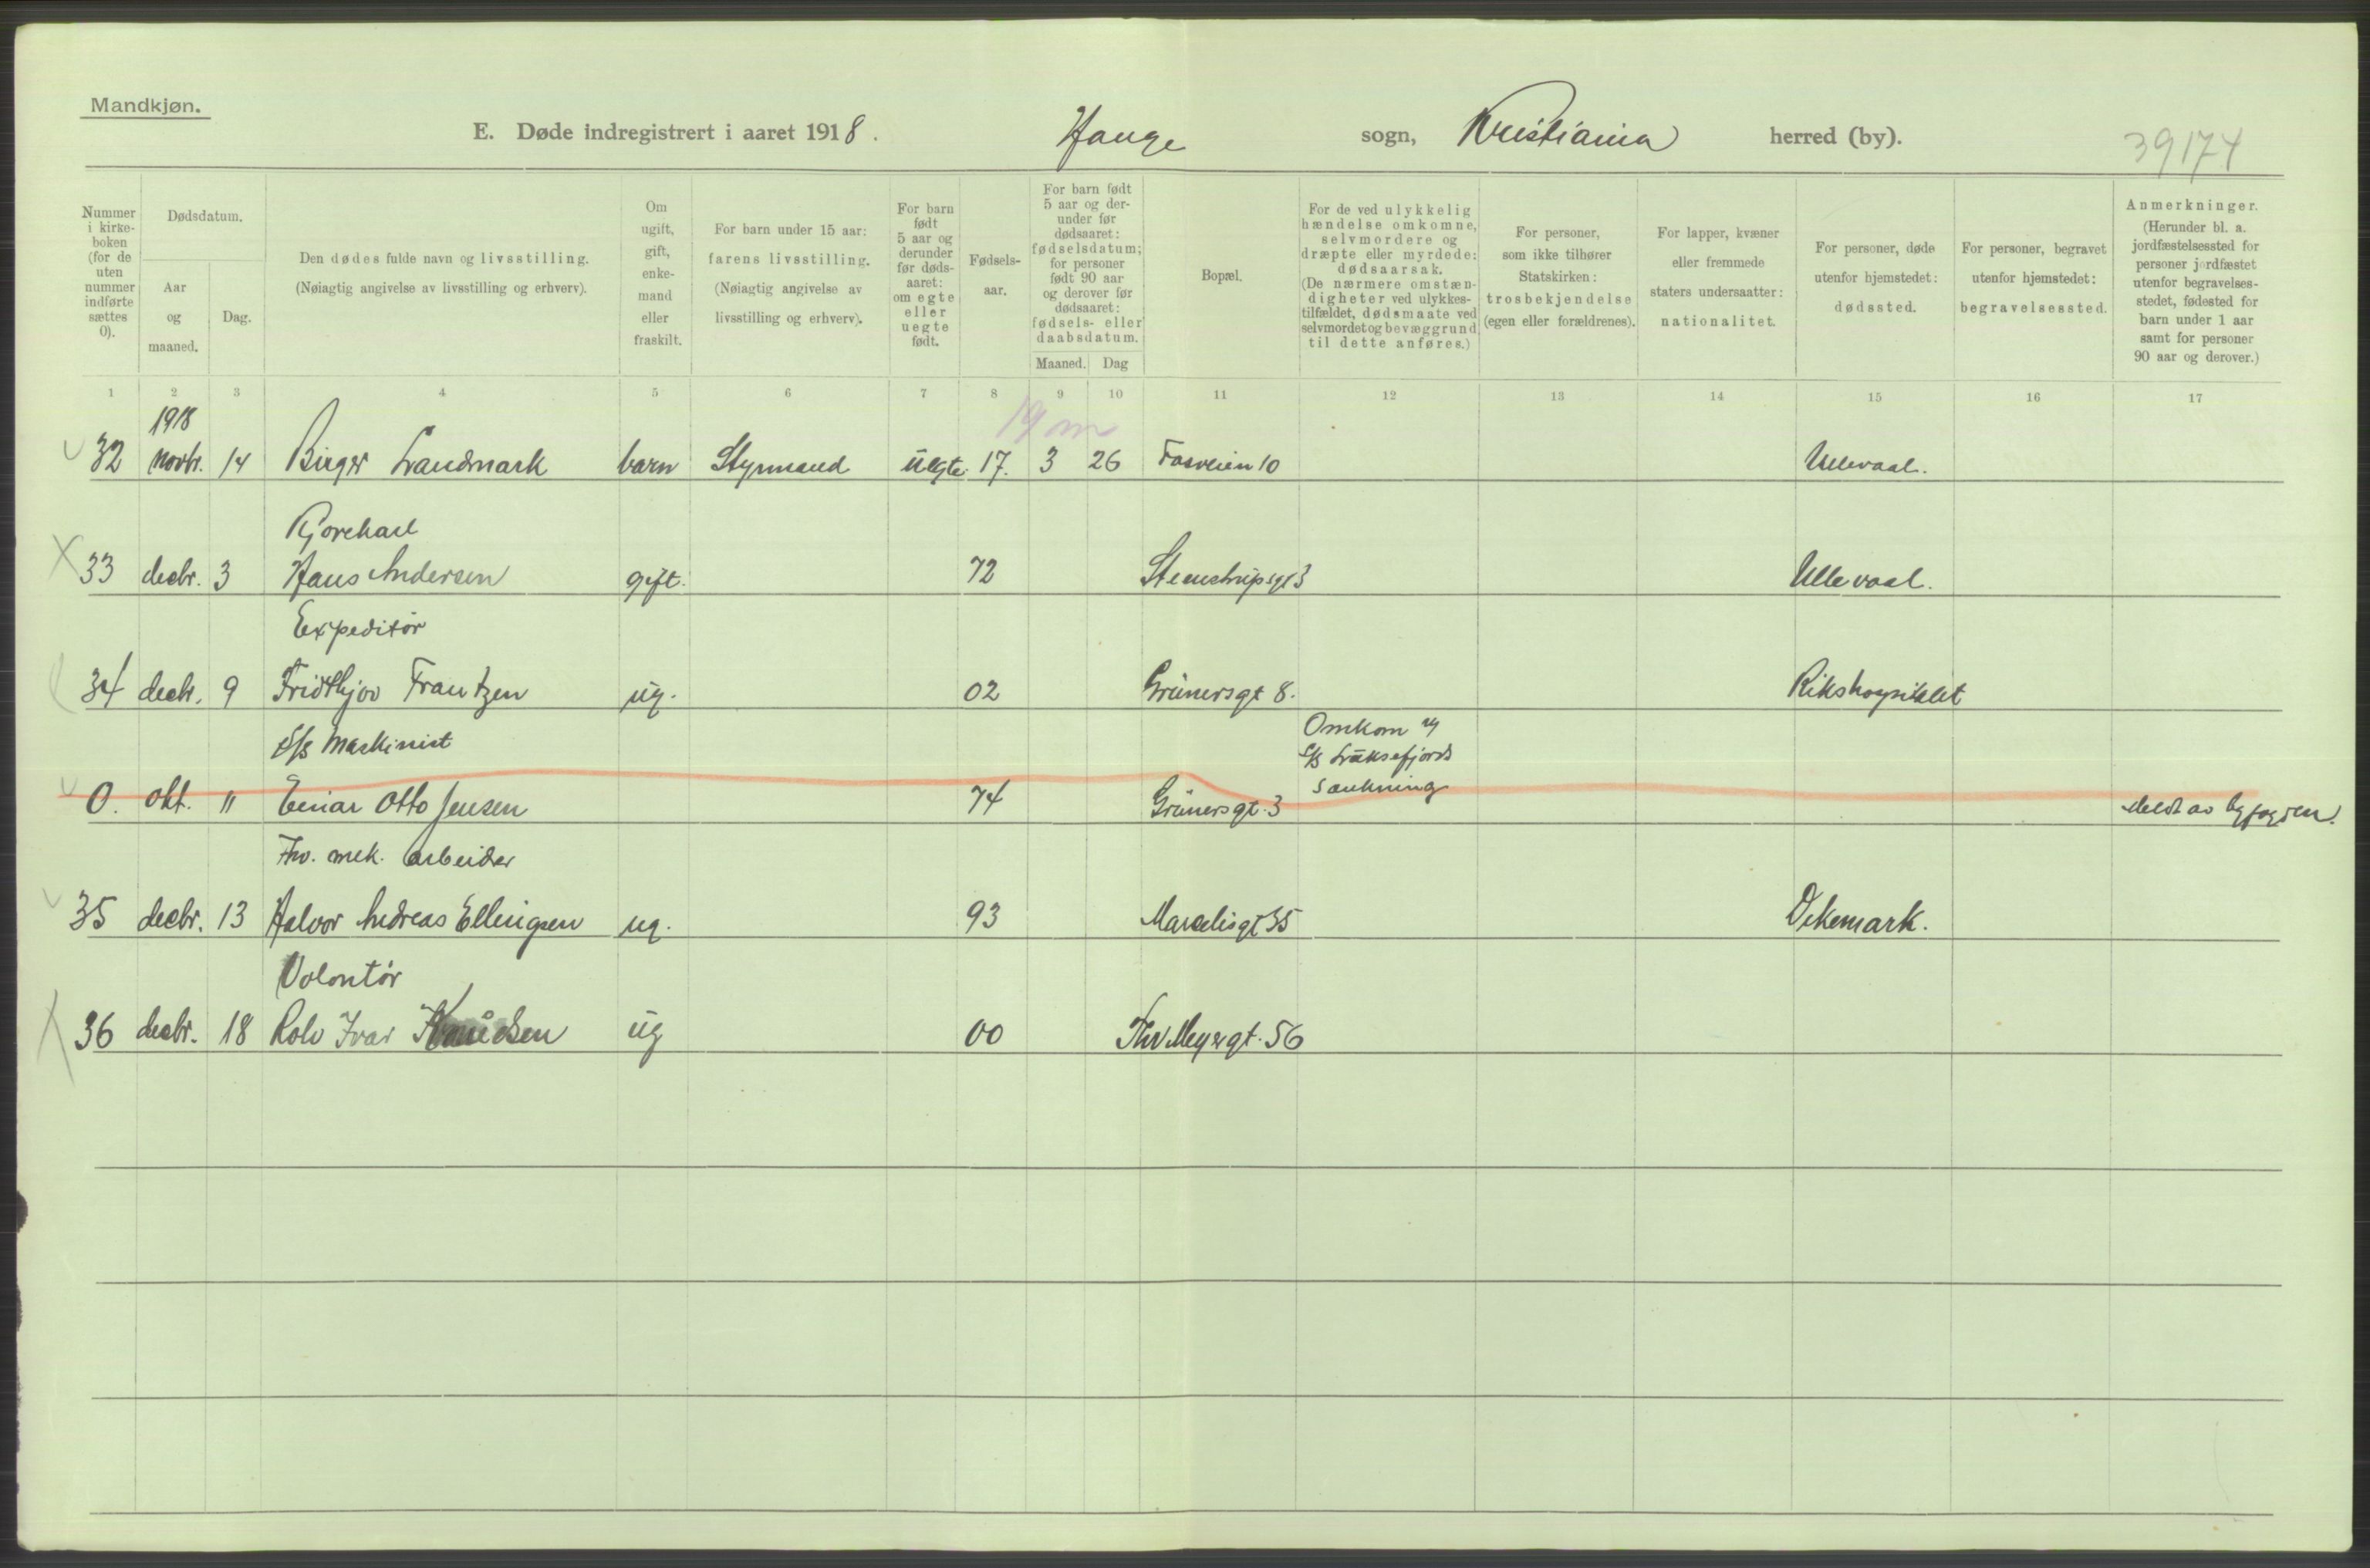 Mandkjøn.
E. Døde indregistrert i aaret 1918. Hauge sogn, Kristiania herred (by). 39174
Nummer i kirke-boken (for de uten nummer indførte sættes 0).
Dødsdatum.
Aar og maaned.
Dag.
Den dødes fulde navn og livsstilling.
(Nøiagtig angivelse av livsstilling og erhverv).
Om ugift, gift, enke-mand eller fraskilt.
For barn under 15 aar: farens livsstilling.
(Nøiagtig angivelse av livsstilling og erhverv).
For barn født 5 aar og derunder før døds-aaret: om egte eller uegte født.
Fødsels-aar.
For barn født 5 aar og der-under før dødsaaret: fødselsdatum; for personer født 90 aar og derover før dødsaaret: fødsels- eller daabsdatum.
Maaned. Dag
Bopæl.
For de ved ulykkelig hændelse omkomne, selvmordere og dræpte eller myrdede: dødsaarsak. (De nærmere omstæn-digheter ved ulykkes-tilfældet, dødsmaate ved selvmordet og bevæggrund til dette anføres.)
For personer, som ikke tilhører Statskirken: trosbekjendelse (egen eller forældrenes).
For lapper, kvæner eller fremmede staters undersaatter: nationalitet.
For personer, døde utenfor hjemstedet: dødssted.
For personer, begravet utenfor hjemstedet: begravelsessted.
Anmerkninger.
(Herunder bl. a. jordfæstelsessted for personer jordfæstet utenfor begravelses-stedet, fødested for barn under 1 aar samt for personer 90 aar og derover.)
1 2 3 4 5 6 7 8 9 10 11 12 13 14 15 16 17
1918
19 m
32 novbr. 14 Birger Landmark barn Styrmand uegte 17. 3 26 Fosveien 10 Ullevaal.
Kjørekarl
33 decbr. 3 Hans Andersen gift. 72 Steenstrupsgt 3 Ullevaal.
Expeditør
34 decbr. 9 Fridthjov Frantzen ug. 02 Grünersgt 8. Rikshospitalet
S/s Maskinist Omkom
S/s Laksefjords
sænkning
0. okt. 11 Einar Otto Jensen 74 Grünersgt. 3 Meldt av byfogden.
Fhv. mek. arbeider
35 decbr. 13 Halvor Andreas Ellingsen ug. 93 Marselisgt 35 Dikemark.
Volontør
36 decbr. 18 Rolv Ivar Knudsen ug 00 Thv Meyersgt. 56